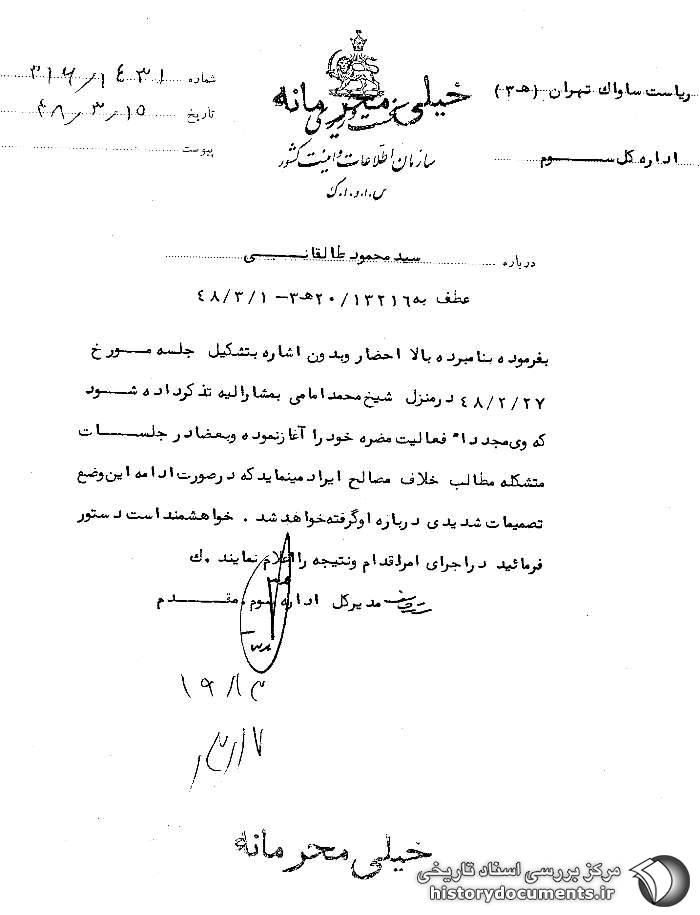 ریاست ساواك تهران (هـ ۳)
اداره كل ســـوم
خیلی محرمانه
نخست وزیری
سازمان اطلاعات و امنیت کشور
س.ا.و.ا.ک
شماره ۳۱۶/۱۴۳۱
تاریخ ۴۸/۳/۱۵
پیوست
درباره سید محمود طالقانــــی
عطف به ۲۰/۱۳۲۱۶هـ۳ – ۴۸/۳/۱
بفرموده بنامبرده بالا احضار وبدون اشاره بتشكیل جلسه مـــورخ
۴۸/۲/۲۷ درمنزل شیخ محمد امامی بمشارالیه تذكرداده شـــود
كه وی مجدداً فعالیت مضره خود را آغازنموده وبعضا در جلســـات
متشكله مطالب خلاف مصالح ایراد مینمایدكه درصورت ادامه این وضع
تصمیمات شدیدی درباره اوگرفته خواهد شد . خواهشمند است دستور
فرمائید دراجرای امراقدام ونتیجه رااعلام نمایند .ك
مدیركل اداره سوم . مقـــدم
خیلی محرمانه
مرکز بررسی اسناد تاریخی
historydocuments.ir